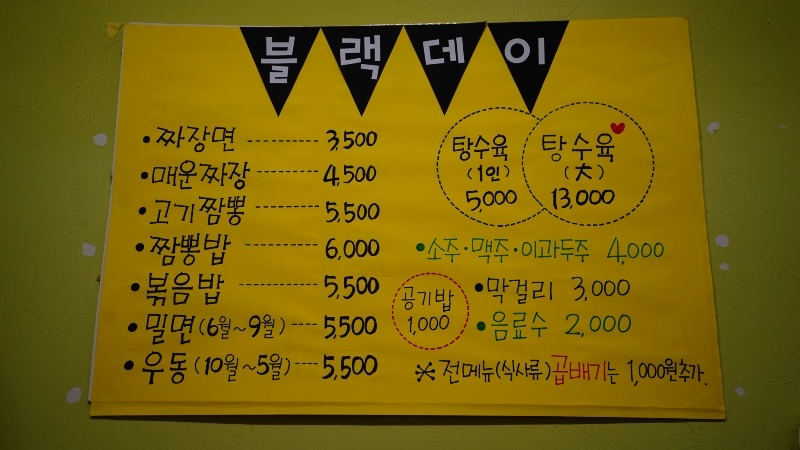 블랙데이
•짜장면 ---------- 3,500
•매운짜장 -------- 4,500
•고기짬뽕 -------- 5,500
•짬뽕밥 ---------- 6,000
•볶음밥 ---------- 5,500
•밀면(6월~9월) ---- 5,500
•우동(10월~5월) ---- 5,500
탕수육
(1인)
5,000
탕수육
(大)
13,000
•소주·맥주·이과두주 4,000
공기밥
1,000
•막걸리 3,000
•음료수 2,000
※전메뉴(식사류)곱배기는 1,000원추가.